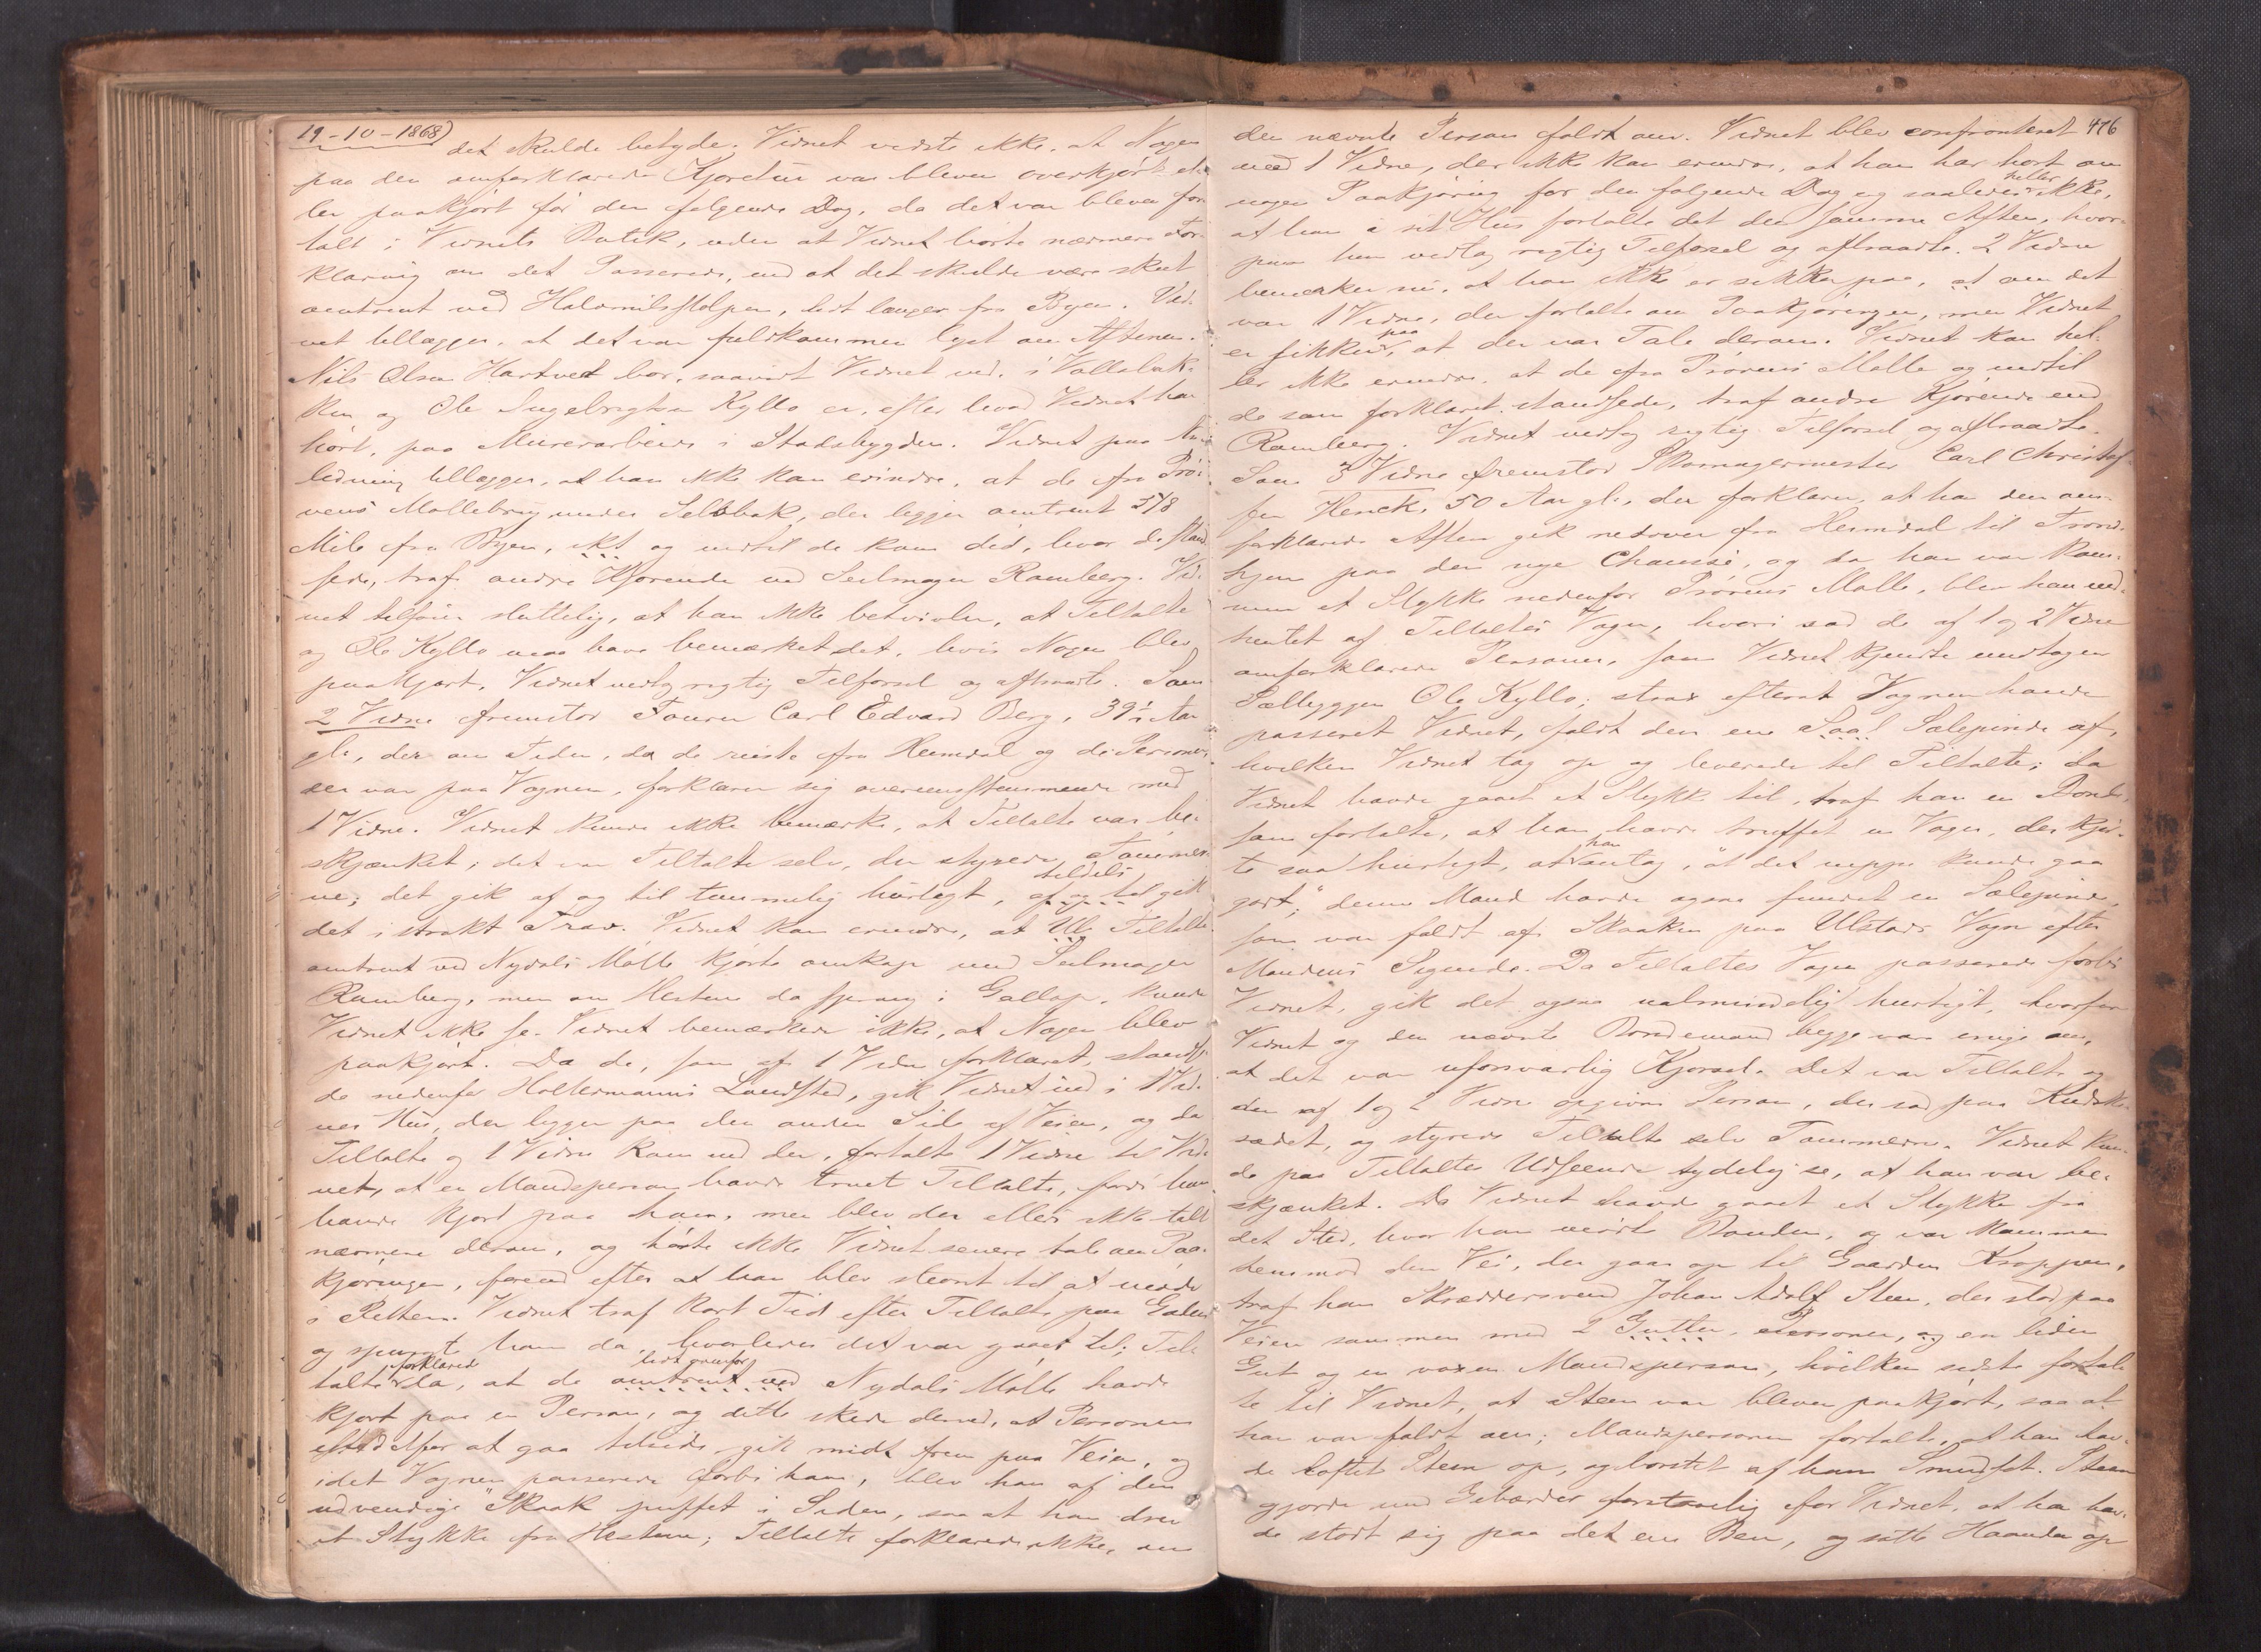 19-10-1868)
det skulde betyde. Vidnet vidste ikke, at Nogen
paa den omforklarede Kjøretur var bleven overkjørt el-
ler paakjørt før den følgende Dag, da det var bleven for-
talt i Vidnets Butik, uden at Vidnet hørte nærmere For-
klaring om det Passerede, end at det skulde være skeet
omtrent ved Halvmilsstolpen, lidt længer fra Byen. Vid-
net tillægger, at det var fuldkommen lyst om Aftenen.
Nils Olsen Hartvet bor, saavidt Vidnet ved, i Vollabak-
ken og Ole Ingebrigtsen Kyllo er, efter hvad Vidnet har
hørt, paa Murerarbeide i Stadsbygden. Vidnet paa An-
ledning tillægger, at han ikke kan erindre, at de fra Prø-
vens Møllebrug under Selsbak, der ligger omtrent 5/8
Mile fra Byen, ikt og indtil de kom did, hvor de stand-
sede, traf andre Kjørende end Seilmager Ramberg. Vid-
net tilføier sluttelig, at han ikke betvivler, at Tiltalte
og Ole Kyllo maa have bemærket det, hvis Nogen blev
paakjørt. Vidnet vedtog rigtig Tilførsel og aftraadte. Som
2 Vidne fremstod Fourer Carl Edvard Berg, 39 1/2 Aar
gl., der om Tiden, da de reiste fra Heimdal og de Personer
der var paa Vognen, forklarer sig overensstemmende med
1 Vidne. Vidnet kunde ikke bemærke, at Tiltalte var be-
skjænket; det var Tiltalte selv, der styrede Tømmer-
ne; det gik af og til temmelig hurtigt, af og til tildels gik
det i strakt Trav. Vidnet kan erindre, at Ul. Tiltalte
omtrent ved Nydals Mølle kjørte omkap med Seilmager
Ramberg, men om Hestene da sprang i Gallop, kunde
Vidnet ikke se. Vidnet bemærkede ikke, at Nogen blev
paakjørt. Da de, som af 1 Vidne forklaret, standse-
de nedenfor Holtermanns Landsted, gik Vidnet ind i 1 Vid-
nes Hus, der ligger paa den anden Side af Veien, og da
Tiltalte og 1 Vidne kom ind der, fortalte 1 Vidne til Vid-
net, at en Mandsperson havde truet Tiltalte, fordi han
havde kjørt paa ham, men blev der ellers ikke talt
nærmere derom, og hørte ikke Vidnet senere tale om Paa-
kjøringen, førend efter at han blev stevnt til at møde
i Retten. Vidnet traf kort Tid efter Tiltalte paa Gaden
og spurgte ham da, hvorledes det var gaaet til; Til-
talte forklarede da, at de omtrent ved lidt ovenfor Nydals Mølle havde
kjørt paa en Person, og dette skede derved, at Personen
istedetfor at gaa tilside gik midt frem paa Veien, og
idet Vognen passerede forbi ham, blev han af den
udvendige Skaak puffet i Siden, saa at han drev
et Stykke fra Hesten; Tiltalte forklarede ikke, om
476
den nævnte Person faldt om. Vidnet blev confronteret
med 1 Vidne, der ikke kan erindre, at han har hørt om
nogen Paakjøring før den følgende Dag og saaledes heller ikke,
at han i sit Hus fortalte det den samme Aften, hvor-
paa han vedtog rigtig Tilførsel og aftraadte. 2 Vidne
bemærker nu, at han ikke er sikker paa, at om det
var 1 Vidne, der fortalte om Paakjøringen, men Vidnet
er sikker paa, at der var Tale derom. Vidnet kan hel-
ler ikke erindre, at de fra Prøvens Mølle og indtil
de som forklaret standsede, traf andre Kjørende end
Ramberg. Vidnet vedtog rigtig Tilførsel og aftraadte.
Som 3 Vidne fremstod Skomagermester Carl Christof-
fer Henck, 50 Aar gl., der forklarer, at han den om-
forklarede Aften gik nedover fra Heimdal til Trond-
hjem paa den nye Chaussé, og da han var kom-
men et Stykke nedenfor Prøvens Mølle, blev han ind-
hentet af Tiltaltes Vogn, hvori sad de af 1 og 2 Vidne
omforklarede Personer, som Vidnet kjendte undtagen
Sælbyggen Ole Kyllo; strax efterat Vognen havde
passeret Vidnet, faldt den ene Saal Sælepinde af,
hvilken Vidnet tog op og leverede til Tiltalte; da
Vidnet havde gaaet et Stykke til, traf han en Bonde,
som fortalte, at han havde truffet en Vogn, der kjør-
te saa hurtigt, at han antog, "at det neppe kunde gaa
godt;" denne Mand havde ogsaa fundet en Sælepinde,
som var faldt af Skaaken paa Ulstads Vogn efter
Mandens Sigende. Da Tiltaltes Vogn passerede forbi
Vidnet, gik det ogsaa ualmindelig hurtigt, hvorfor
Vidnet og den nævnte Bondemand begge var enige om,
at det var uforsvarlig Kjørsel. Det var Tiltalte og
den af 1 og 2 Vidne opgivne Person, der sad paa Kudske-
sædet, og styrede Tiltalte selv Tømmerne. Vidnet kun-
de paa Tiltaltes Udseende tydelig se, at han var be-
skjænket. Da Vidnet havde gaaet et Stykke fra
det Sted, hvor han mødte Bonden, og var kommen
henimod den Vei, der gaar op til Gaarden Kroppan,
traf han Skræddersvend Johan Adolf Steen, der stod paa
Veien sammen med 2 Gutter, Personer, og en liden
Gut og en voxen Mandsperson, hvilken sidste fortal-
te til Vidnet, at Steen var bleven paakjørt, saa at
han var faldt om; Mandspersonen fortalte, at han hav-
de løftet Steen op, og børstet af ham Smudset. Steen
gjorde med Gebærder forstaaelig for Vidnet, at han hav-
de stødt sig paa det ene Ben, og satte Haanden op